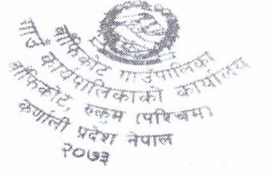 बाँफिकोट गाउँपालिका
गाउँ कार्यपालिकाको कार्यालय
बाँफिकोट, रुकुम (पश्चिम)
कर्णाली प्रदेश नेपाल
२०७३